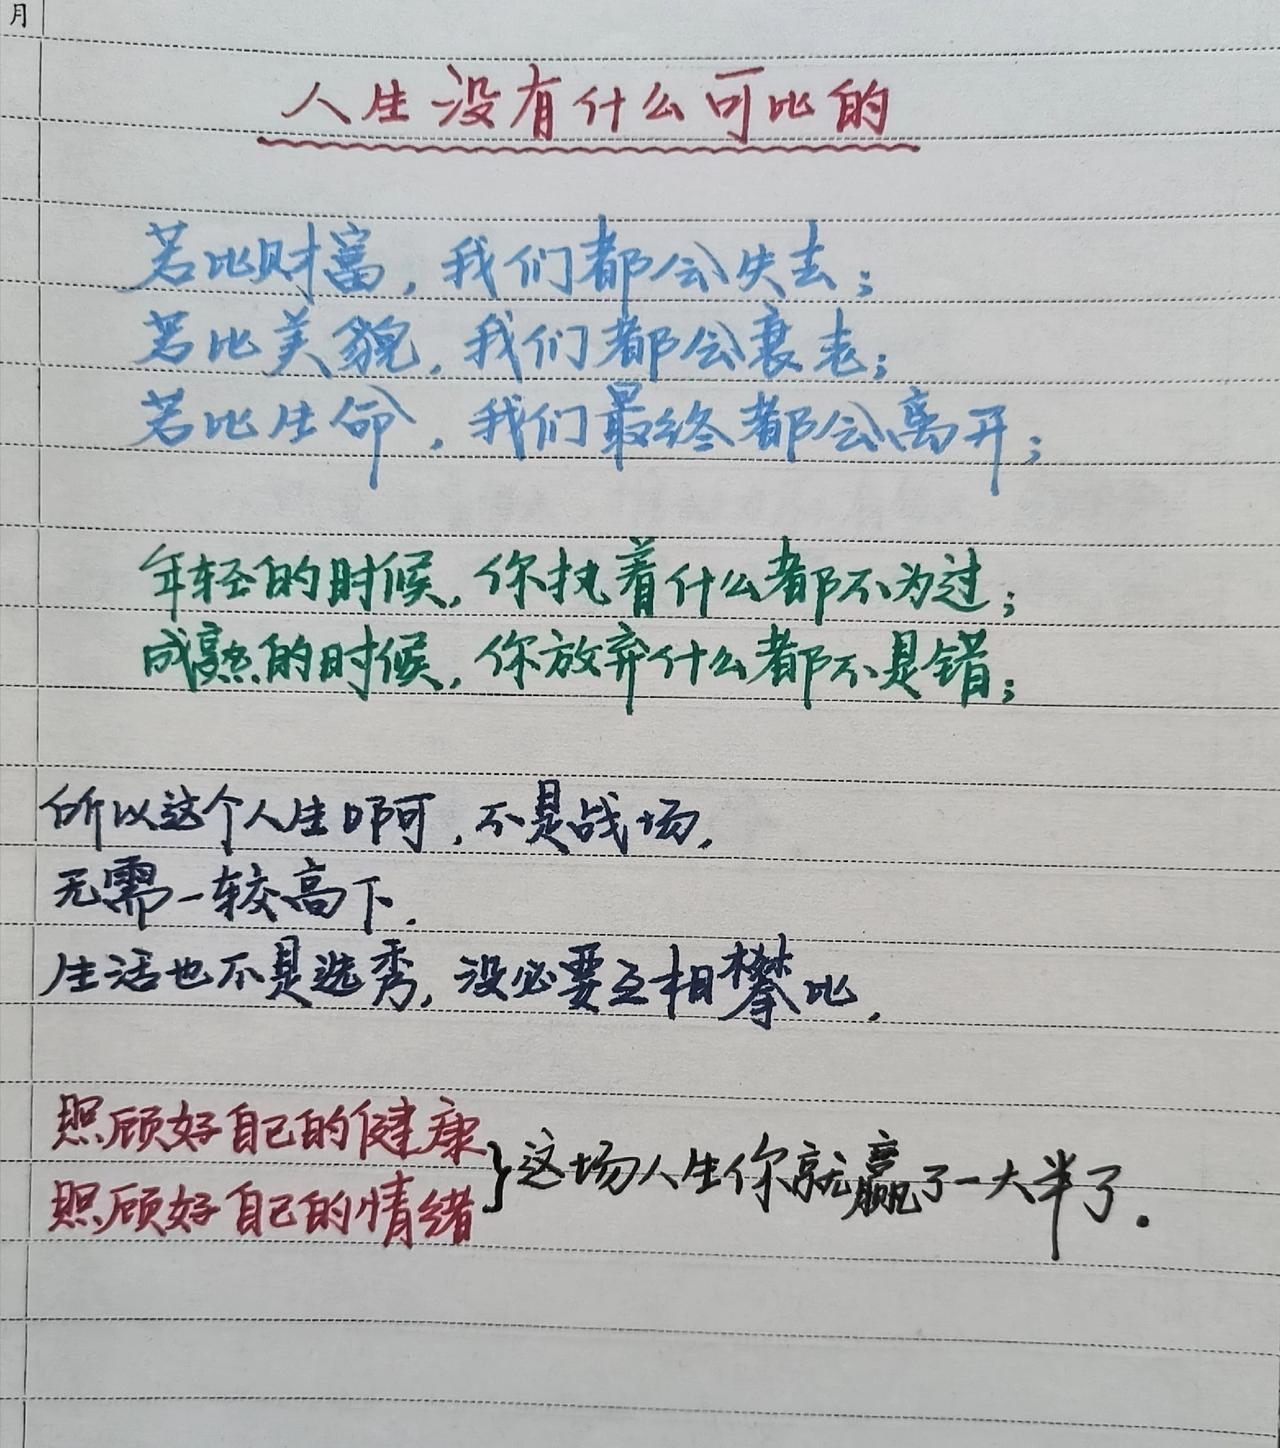 月
人生没有什么可比的
若比财富,我们都会失去;
若比美貌,我们都会衰老;
若比生命,我们最终都会离开;
年轻的时候,你执着什么都不为过;
成熟的时候,你放弃什么都不是错;
所以这个人生啊,不是战场,
无需一较高下.
生活也不是选秀,没必要互相攀比,
照顾好自己的健康
照顾好自己的情绪
}这场人生你就赢了一大半了.